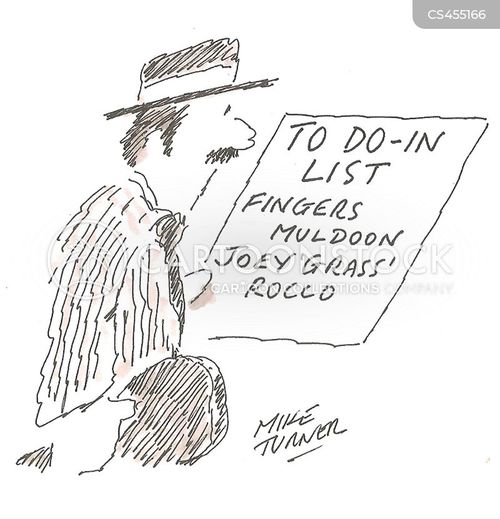 CS455166
TO DO-IN
LIST
FINGERS
MULDOON
JOEY 'GRASS'
ROCCO
CARTOONSTOCK
CARTOON COLLECTIONS COMPANY
MIKE
TURNER